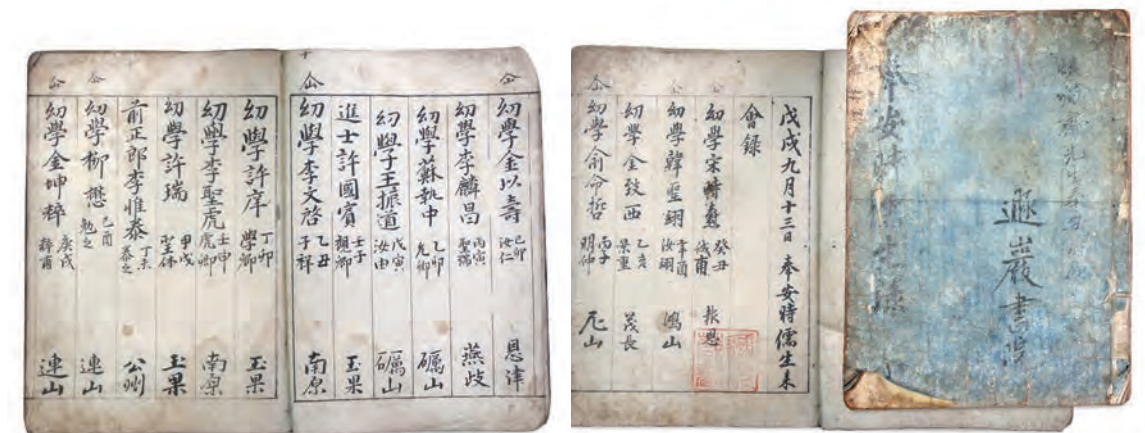 遯巖書院
戊戌九月十三日 奉安時儒生来
會錄
幼學宋時 癸丑 甫 報恩
幼學韓聖翊 辛酉 汝翊 鴻山
幼學金致西 乙亥 重 茂長
幼學俞命哲 丙子 明仲 尼山
幼學金以壽 己卯 汝仁 恩津
幼學李麟昌 丙寅 聖瑞 燕歧
幼學蘇執中 乙卯 允卿 礪山
幼學王振道 戊寅 汝由 礪山
進士許國賓 壬子 觀卿 玉果
幼學李文啓 乙丑 子祥 南原
幼學許庠 丁卯 學卿 玉果
幼學李聖虎 壬申 虎卿 南原
幼學許瑞 甲戌 聖休 玉果
前正郎李惟泰 丁未 泰之 公州
幼學柳懋 己酉 勉之 連山
幼學金坤粹 庚戌 粹甫 連山